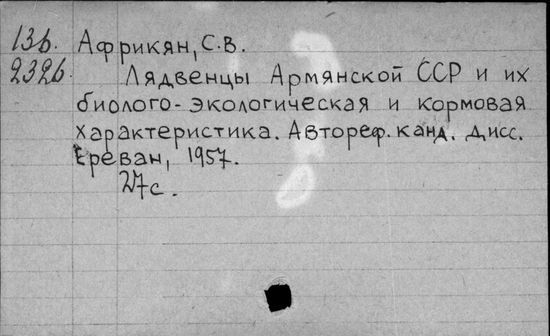 13б. Африкян, С.В.
232б. Лядвенцы Армянской ССР и их
биолого-экологическая и кормовая
характеристика. Автореф. канд. дисс.
Ереван, 1957.
27с.